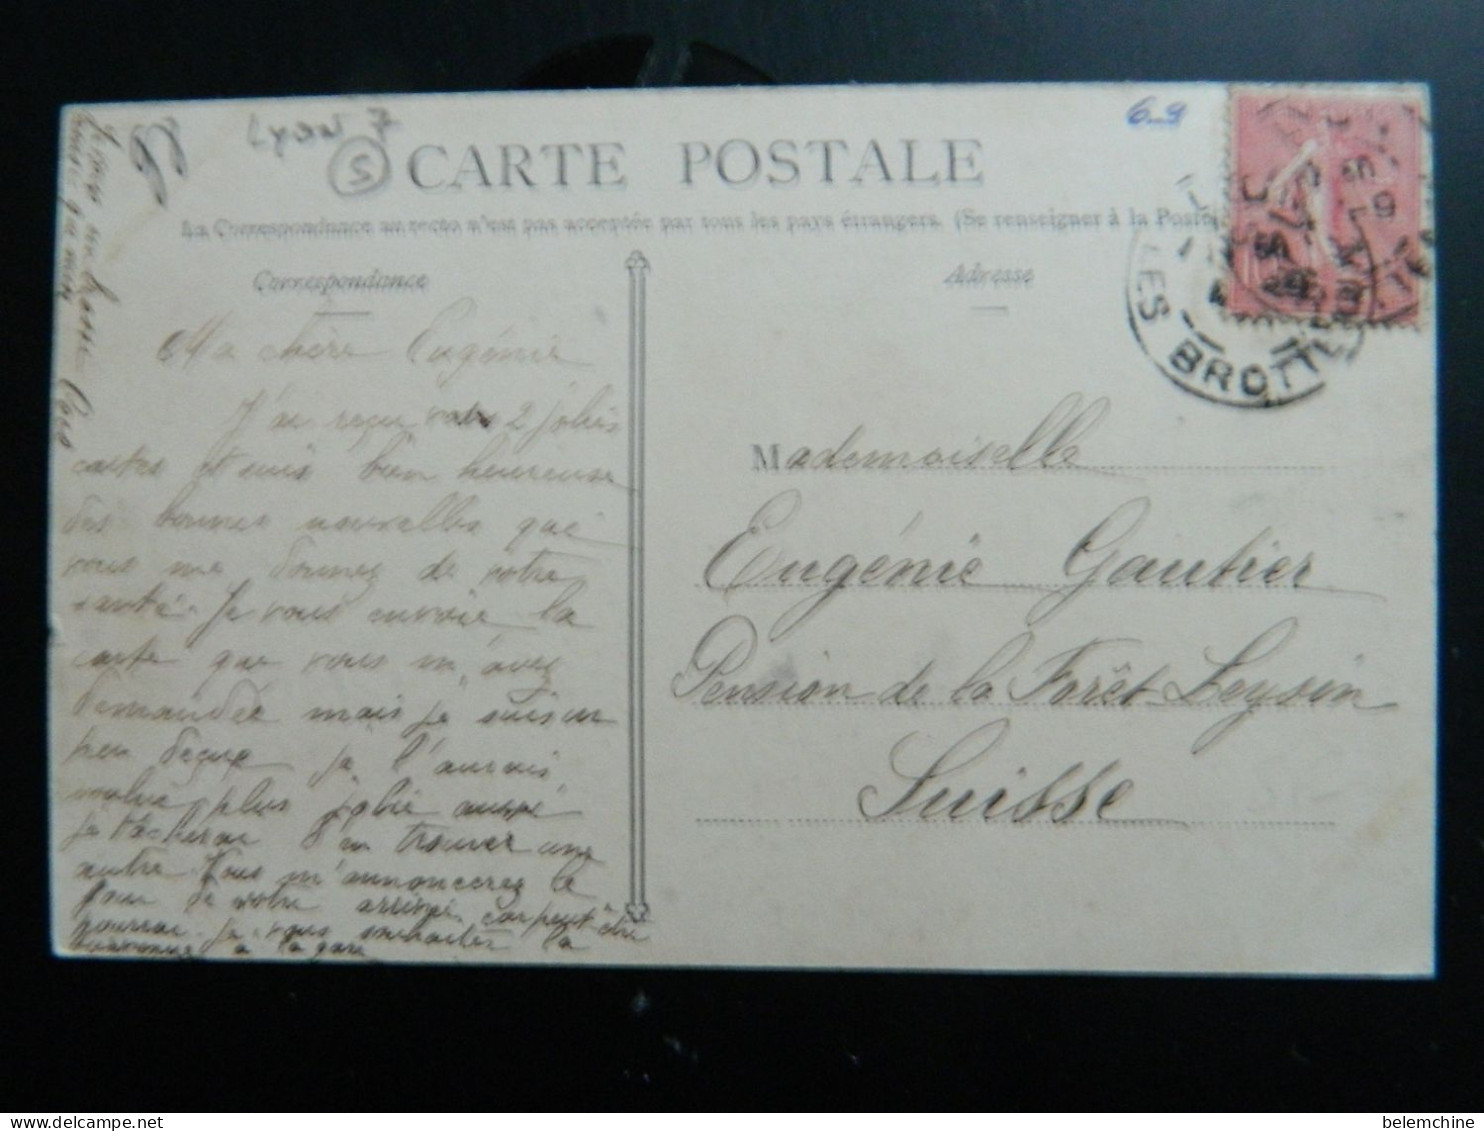 Lyon 7
5
6-9
CARTE POSTALE
La Correspondance au recto n'est pas acceptée par tous les pays étrangers. (Se renseigner à la Poste
Correspondance
Adresse
Ma chère Eugénie
J'ai reçu vos 2 jolies
cartes et suis bien heureuse
des bonnes nouvelles que
vous me donnez de votre
santé. Je vous envoie la
carte que vous m'avez
demandée mais je suis un
peu déçue je l'aurais
voulue plus jolie aussi
je tâcherai d'en trouver une
autre. Vous m'annoncerez le
jour de votre arrivée car peut être
pourrai je vous souhaiter la
bienvenue à la gare
Mademoiselle
Eugénie Gautier
Pension de la Forêt Leysin
Suisse
LES BROTTEAUX
belemchine